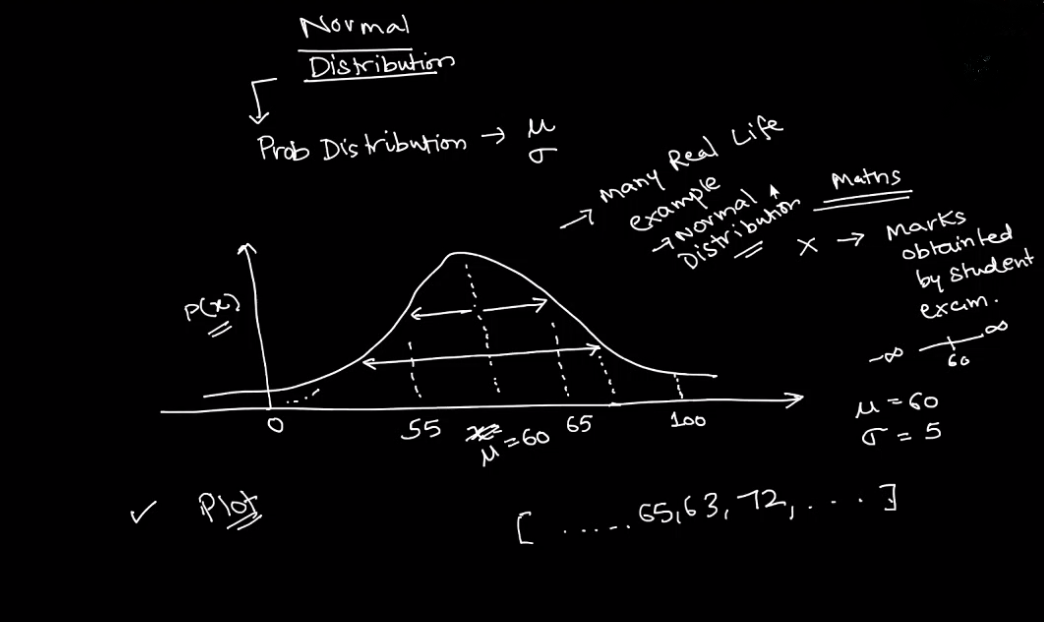 Normal
Distribution
Prob Distribution → μ
σ
→ Many Real Life
example
→ Normal
Distribution
Maths
X → Marks
obtainted
by student
exam.
-∞ ∞
60
μ = 60
σ = 5
P(x)
0
55
μ = 60
65
100
✓ Plot
[ ...... 65, 63, 72, .... ]